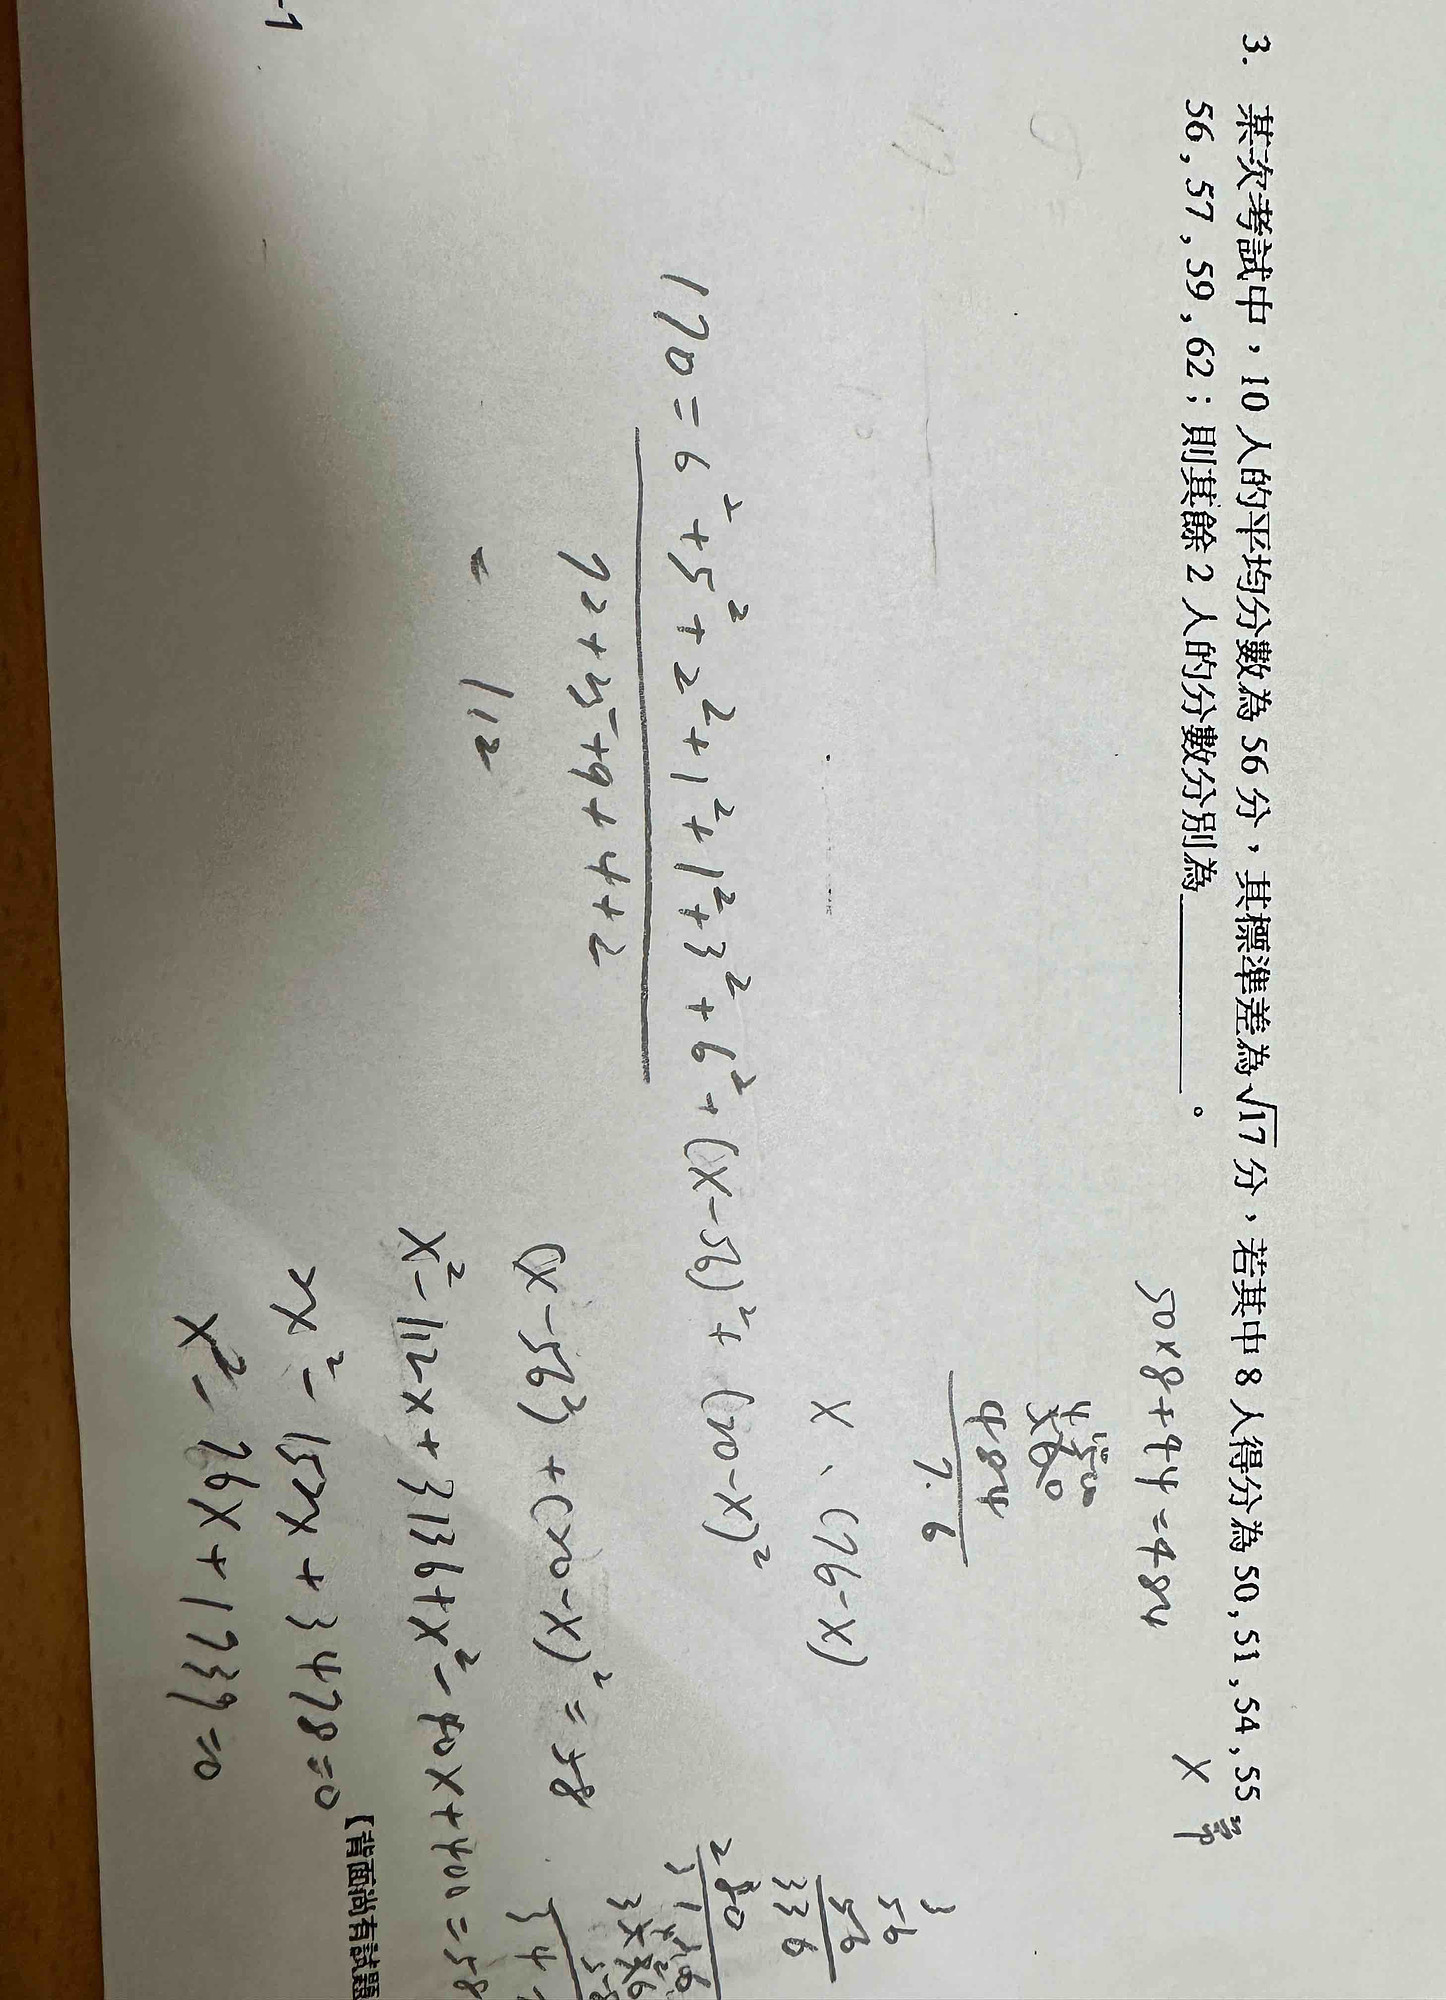 3. 某次考試中，10 人的平均分數為 56 分，其標準差為√17 分，若其中 8 人得分為 50, 51, 54, 55,
56, 57, 59, 62；則其餘 2 人的分數分別為________。
50×8+44=484
X
484
76
X、(76-X)
170=6²+5²+2²+1²+1²+3²+6²+(X-56)²+(20-X)²
72+25+9+4+2
112
(X-56)²+(20-X)²=58
X²-112X+3136+X²-40X+400=58
2X²-152X+3478=0
X²-76X+1739=0
56
56
336
280
【背面尚有試題
-1